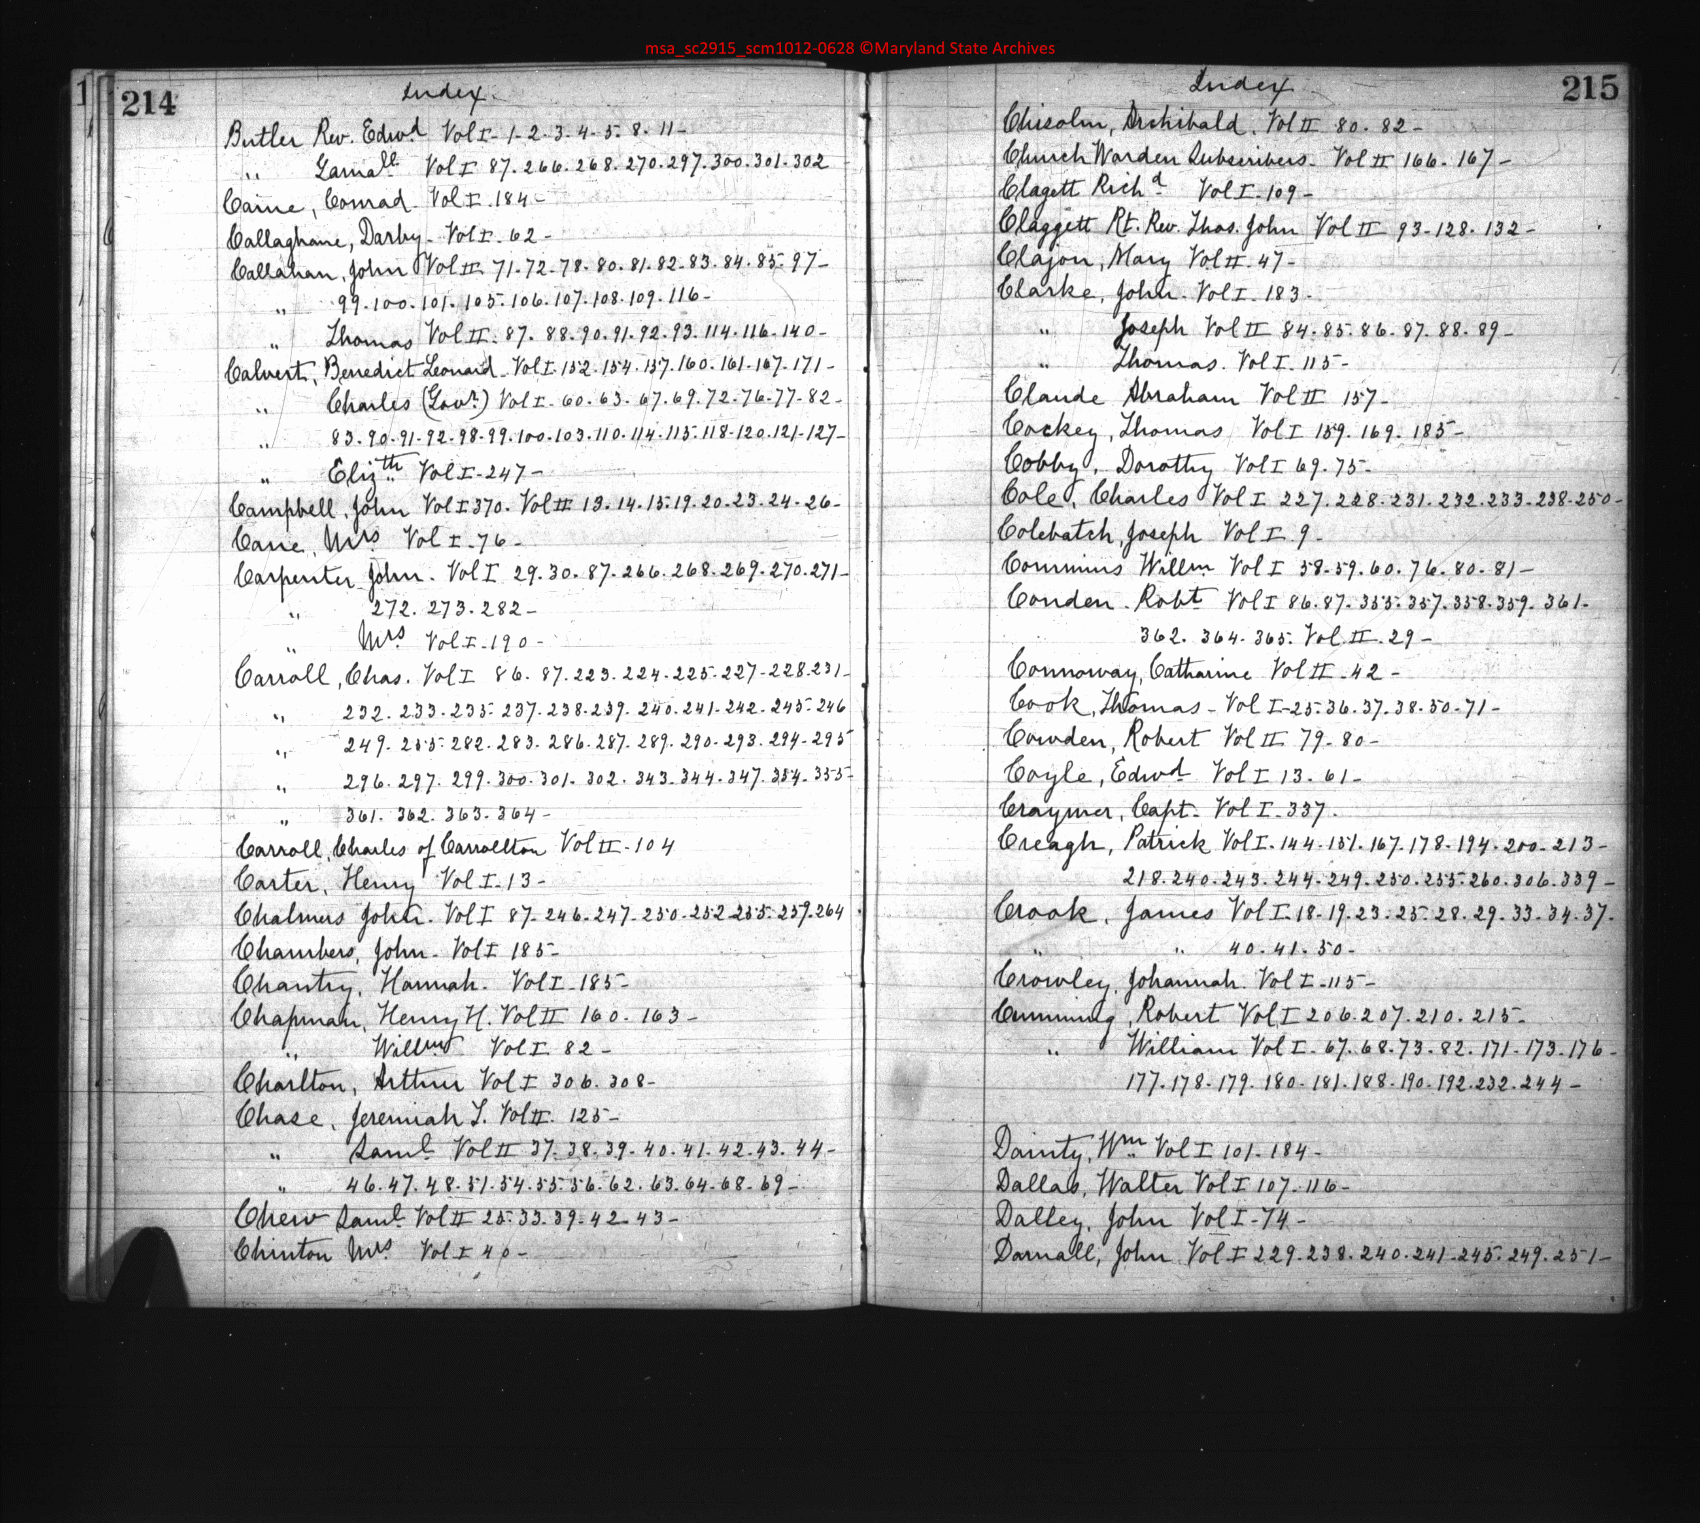 msa_sc2915_scm1012-0628 ©Maryland State Archives
214
Index
Butler Rev. Edwd Vol I - 1-2-3-4-5. 8. 11-
" Vol I 87. 266. 268. 270. 297. 300. 301. 302
Caine, Conrad. Vol I. 184-
Callaghane, Darby. Vol I. 62-
Callahan, John Vol II. 71-72-78. 80. 81. 82-83. 84. 85. 97-
" 99. 100. 101. 105. 106. 107. 108. 109. 116-
" Thomas Vol II. 87. 88. 90. 91. 92. 93. 114. 116. 140-
Calvert, Benedict Leonard. Vol I. 152. 154. 157. 160. 161-167. 171-
" Charles (Govr.) Vol I - 60. 63. 67. 69. 72-76-77-82-
" 83. 90. 91-92-98-99. 100-103. 110. 114. 115. 118-120. 121-127-
" Elizth Vol I - 247-
Campbell, John Vol I 370. Vol II 13. 14. 15. 19. 20. 23. 24. 26-
Cane, Mrs Vol I. 76-
Carpenter John. Vol I 29. 30. 87. 266. 268. 269. 270. 271-
" 272. 273. 282-
" Mrs. Vol I. 190-
Carroll, Chas. Vol I 86. 87. 223. 224. 225. 227-228. 231-
" 232. 233. 235. 237. 238. 239. 240. 241. 242. 245. 246
" 249. 255. 282. 283. 286. 287. 289. 290. 293. 294. 295
" 296. 297. 299. 300. 301. 302. 343. 344. 347. 354. 355-
" 361. 362. 363. 364-
Carroll, Charles of Carrollton Vol II. 104
Carter, Henry Vol I. 13-
Chalmers John. Vol I 87. 246. 247. 250. 252. 255. 259. 264
Chambers, John. Vol I 185-
Chantry, Hannah. Vol I. 185-
Chapman, Henry H. Vol II 160. 163-
" Willm. Vol I 82-
Charlton, Arthur Vol I 306. 308-
Chase, Jeremiah T. Vol II. 125-
" Saml. Vol II 37. 38. 39. 40. 41. 42. 43. 44-
" 46. 47. 48. 51. 54. 55. 56. 62. 63. 64. 68. 69-
Chew Saml. Vol II 25. 33. 39. 42. 43-
Chinton Mrs. Vol I 40-
215
Index
Chisolm, Archibald. Vol II 80. 82-
Church Warden Subscribers. Vol II 166. 167-
Clagett Richd. Vol I. 109-
Claggett Rt. Rev. Thos. John Vol II 93-128. 132-
Clajon, Mary Vol II. 47-
Clarke, John. Vol I. 183-
" Joseph Vol II 84. 85. 86. 87. 88. 89-
" Thomas. Vol I. 115-
Claude Abraham Vol II 157-
Cockey, Thomas Vol I 159. 169. 185-
Cobby, Dorothy Vol I 69. 75-
Cole, Charles Vol I 227. 228. 231. 232. 233. 238. 250-
Colebatch, Joseph Vol I 9-
Commins Willm Vol I 58. 59. 60. 76. 80. 81-
Conden. Robt Vol I 86. 87. 355. 357. 358. 359. 361-
362. 364. 365. Vol II. 29-
Connoway, Catharine Vol II. 42-
Cook, Thomas - Vol I - 25. 36. 37. 38. 50. 71-
Cowden, Robert Vol II 79. 80-
Coyle, Edwd Vol I 13. 61-
Craymer, Capt. Vol I. 337.
Creagh, Patrick Vol I. 144. 151. 167. 178. 194. 200. 213-
218. 240. 243. 244. 249. 250. 255. 260. 306. 339-
Crook, James Vol I. 18. 19. 23. 25. 28. 29. 33. 34. 37.
" " 40. 41. 50-
Crowley, Johannah. Vol I. 115-
Cumming, Robert Vol I 206. 207. 210. 215-
" William Vol I. 67. 68. 73. 82. 171. 173. 176-
177. 178. 179. 180. 181. 188. 190. 192. 232. 244-
Dainty, Wm. Vol I 101. 184-
Dallas, Walter Vol I 107. 116-
Dalley, John Vol I - 74-
Darnall, John Vol I 229. 238. 240. 241. 245. 249. 251-